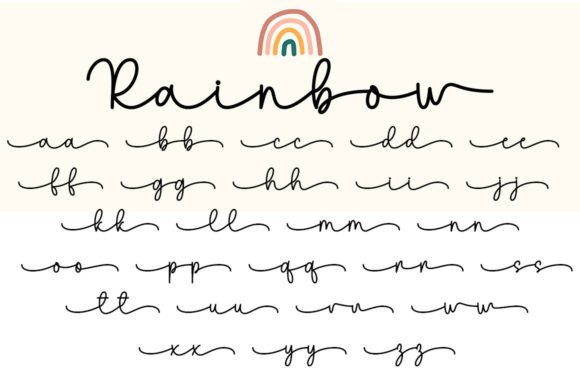 Rainbow
aa bb cc dd ee
ff gg hh ii jj
kk ll mm nn
oo pp qq rr ss
tt uu vv ww
xx yy zz